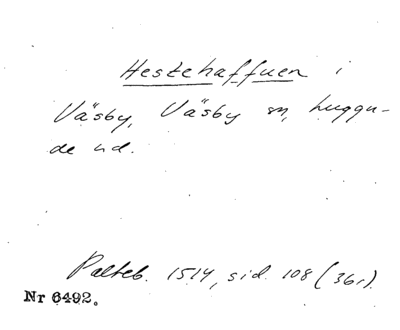 Hestehaffuen i
Väsby, Väsby sn, Luggu-
de hd.
Palteb. 1514, sid. 108 (36r).
Nr 6492.